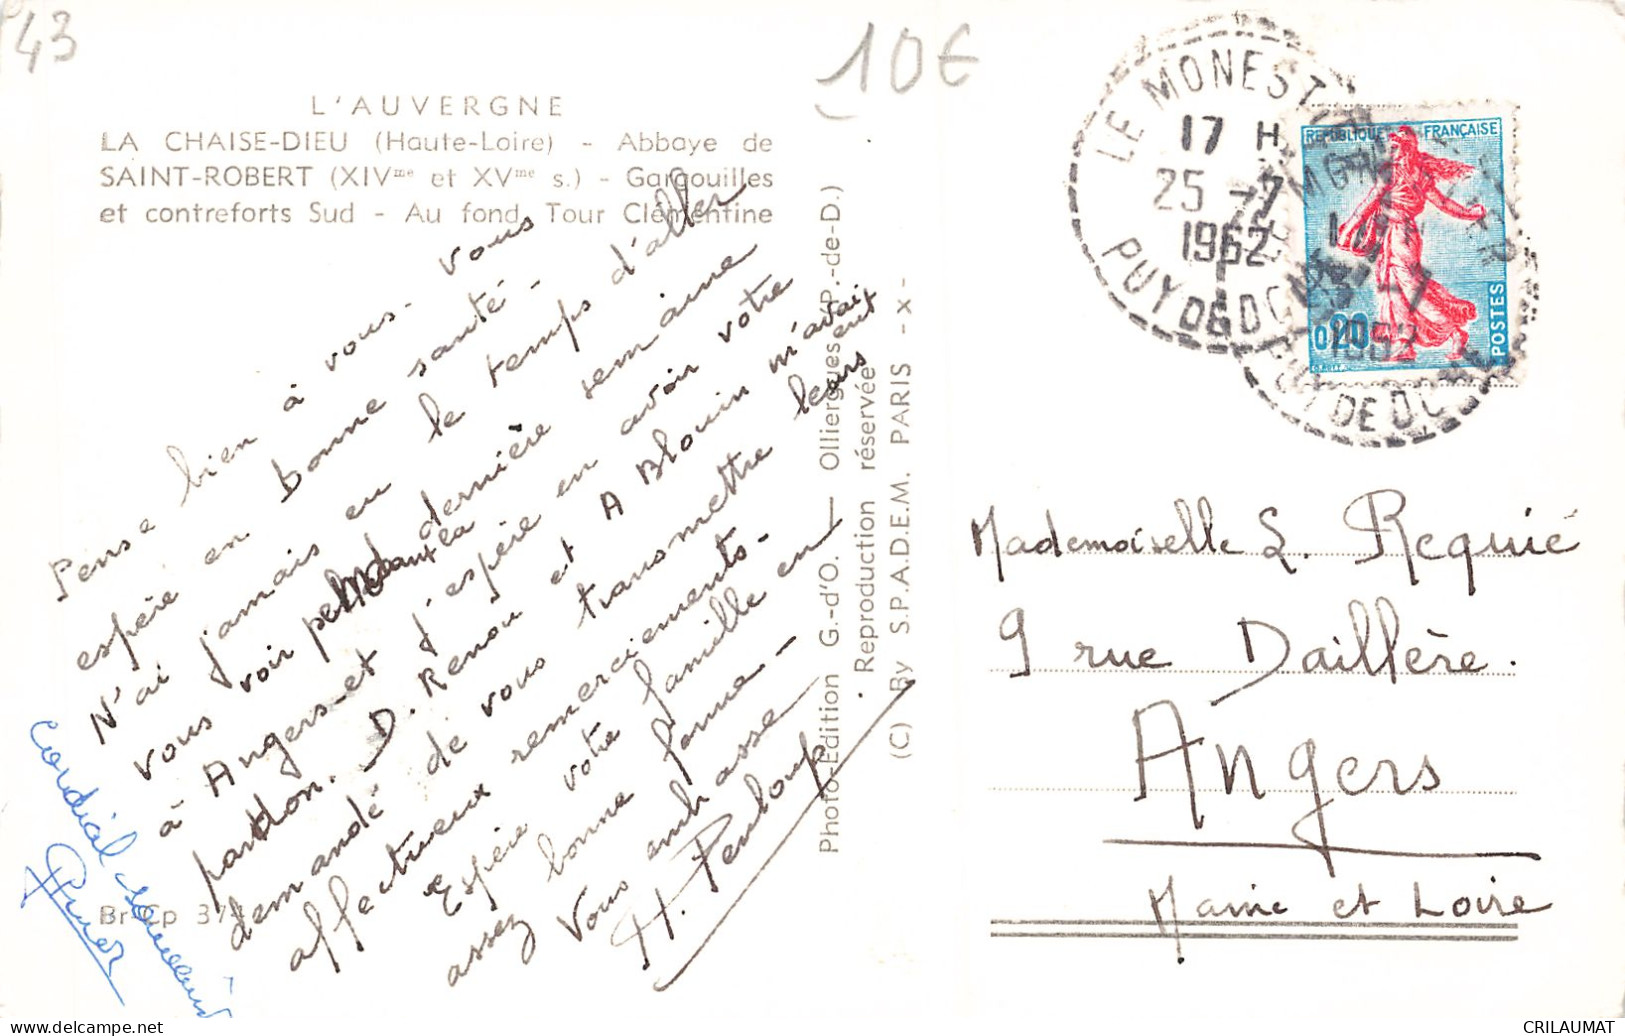 43
10€
L'AUVERGNE
LA CHAISE-DIEU (Haute-Loire) - Abbaye de
SAINT-ROBERT (XIVme et XVme s.) - Gargouilles
et contreforts Sud - Au fond, Tour Clémentine
Pense bien à vous. vous
espère en bonne santé.
N'ai jamais eu le temps d'aller
vous voir pendant la dernière semaine
à Angers et j'espère en avoir votre
pardon. D. Renou et A Blouin m'avaient
demandé de vous transmettre leurs
affectueux remerciements.
Espère votre famille en
assez bonne forme.
Vous embrasse
H. Penloup
cordial souvenir
Br Cp 37
Photo-Edition G.-d'O. — Olliergues (P.-de-D.)
Reproduction réservée
(C) By S.P.A.D.E.M. PARIS -x-
LE MONEST
17 H
25 -7
1962
PUY DE DO
REPUBLIQUE FRANÇAISE
0,20
POSTES
1962
PUY DE DO
Mademoiselle L. Requié
9 rue Daillère.
Angers
Maine et Loire
CRILAUMAT